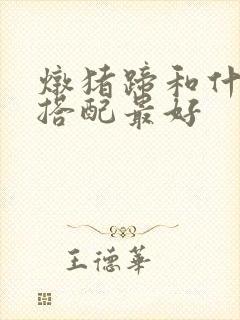 燉猪蹄和什
搭配最好
王德華